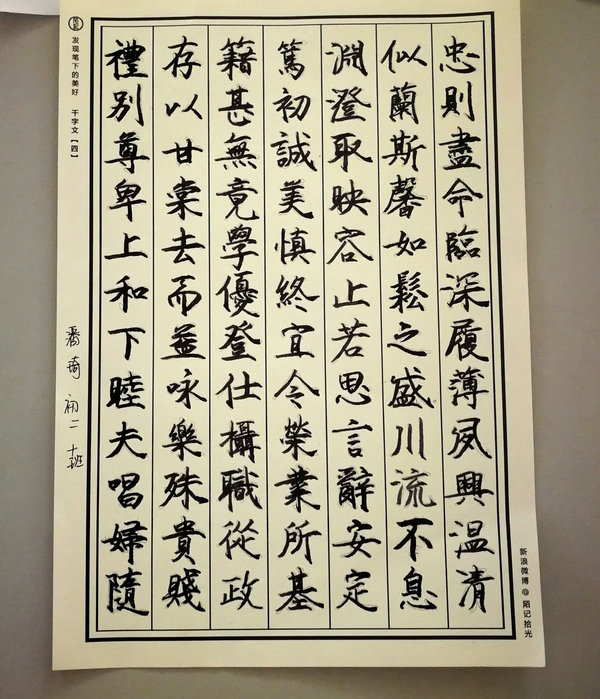 忠則盡命臨深履薄夙興温清
似蘭斯馨如鬆之盛川流不息
淵澄取映容止若思言辭安定
篤初誠美慎終宜令榮業所基
籍甚無竟學優登仕攝職從政
存以甘棠去而益咏樂殊貴賤
禮别尊卑上和下睦夫唱婦隨
发现笔下的美好 千字文【四】
琦 初二 十班
新浪微博@陌记拾光